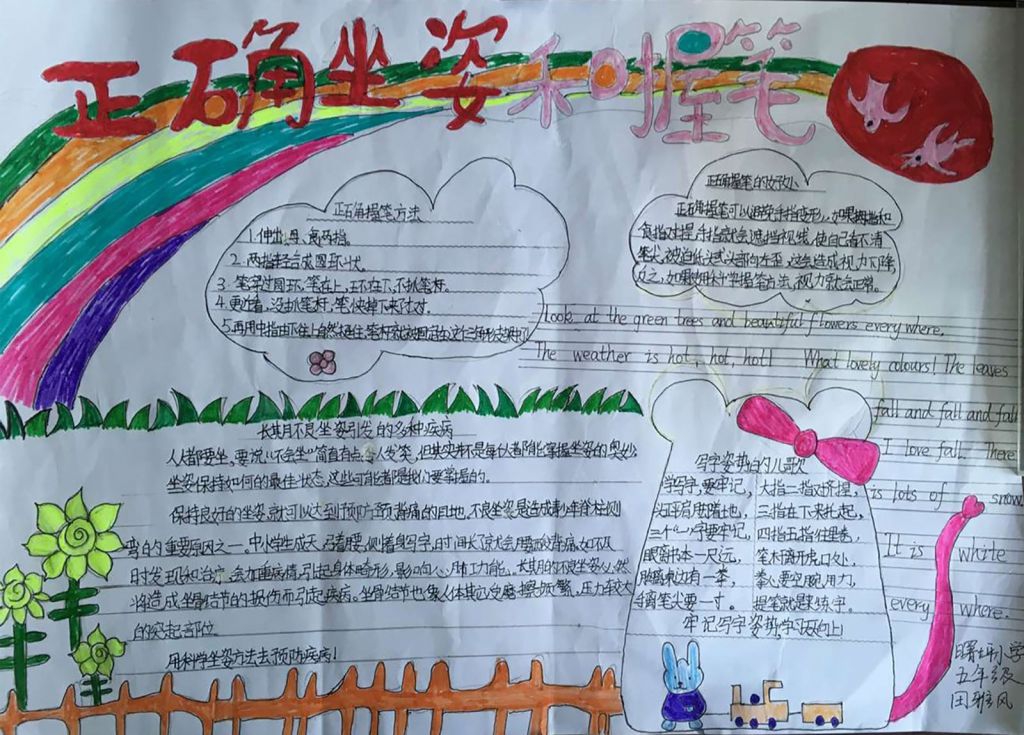 正确坐姿和握笔
正确握笔方法
1.伸出母、食两指。
2.两指轻合成圆环状。
3.笔穿过圆环,笔在上,环在下,不抓笔杆。
4.更近看,没抓笔杆,笔快掉下来对对。
5.再用中指由下往上自然
正确握笔的好处
正确握笔可以避免手指变形,如果拇指和
食指对捏,手指就会遮挡视线,使自己看不清
笔尖,被迫低头或头部向左歪,这会造成视力下降
反之,如果使用科学握笔方法,视力就会正常。
Look at the green trees and beautiful flowers everywhere.
The weather is hot, hot, hot! What lovely colours! The leaves
fall and fall and fall
I love fall. There
is lots of snow.
It is white
every where.
长期不良坐姿引发的多种疾病
人人都要坐,要说"不会坐"简直有点令人发笑,但其实并不是每个人都能掌握坐姿的奥妙
坐姿保持如何的最佳状态,这些可能都是我们要掌握的。
保持良好的坐姿就可以达到预防颈指痛的目地。不良坐姿是造成青少年脊柱侧
弯的重要原因之一。中小学生成天弓着腰,侧着身写字,时间长了就会腰酸背痛,如不及
时发现和治疗,会加重病情,引起身体畸形,影响心肺功能。长期的不良坐姿必然
将造成坐骨结节的损伤而引起疾病。坐骨结节也象人体其它 磨擦频繁,压力较大
的突起部位。
用科学坐姿方法去预防疾病!
写字姿势的儿歌
学写字,要牢记,大指二指对挤捏,
头正肩平脚踏地,三指在下来托起,
三个"一"字要牢记,四指五指往里卷,
眼离书本一尺远,笔杆离开虎口处,
胸离桌边有一拳,拳心要空腕用力,
手离笔尖要一寸。提笔就是来练字。
牢记写字姿势,学习天天向上!
小学
五年级
田雅风